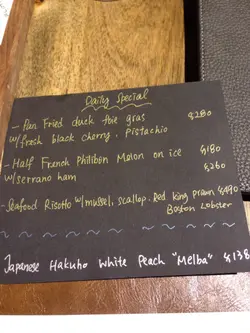 Daily Special
- Pan Fried duck foie gras $280
w/fresh black cherry, Pistachio
- Half French Philibon Melon on ice $180
w/serrano ham $260
- Seafood Risotto w/mussel, scallop. Red king prawn $490
Boston Lobster
Japanese Hakuho White Peach "Melba" $138